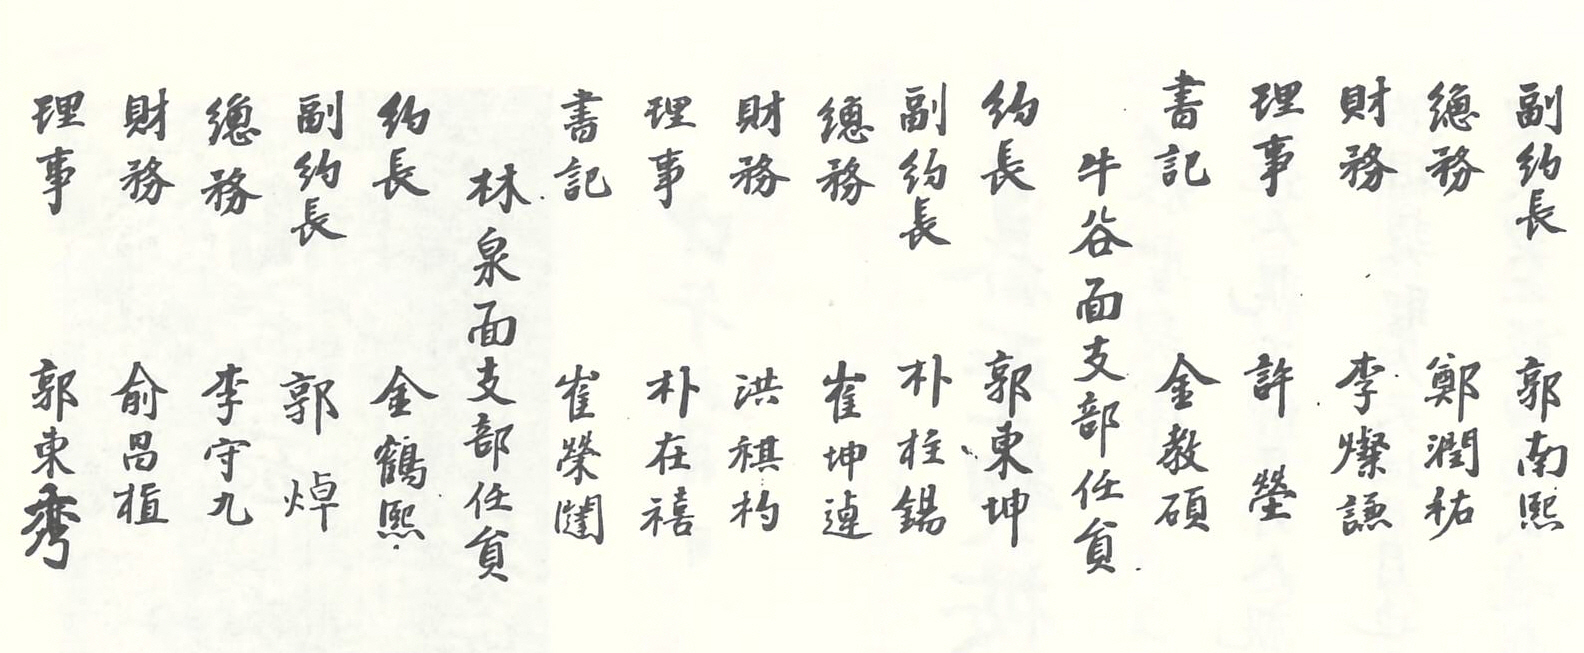 副約長 郭南熙
總務 鄭潤祐
財務 李燦謙
理事 許瑩
書記 金教碩
牛谷面支部任員
約長 郭東坤
副約長 朴柱錫
總務 崔坤
財務 洪祺杓
理事 朴在禧
書記 崔榮
林泉面支部任員
約長 金鶴熙
副約長 郭焯
總務 李守九
財務 俞昌植
理事 郭東秀